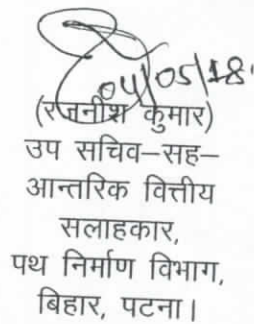 04/05/18
(रजनीश कुमार)
उप सचिव–सह–
आन्तरिक वित्तीय
सलाहकार,
पथ निर्माण विभाग,
बिहार, पटना।